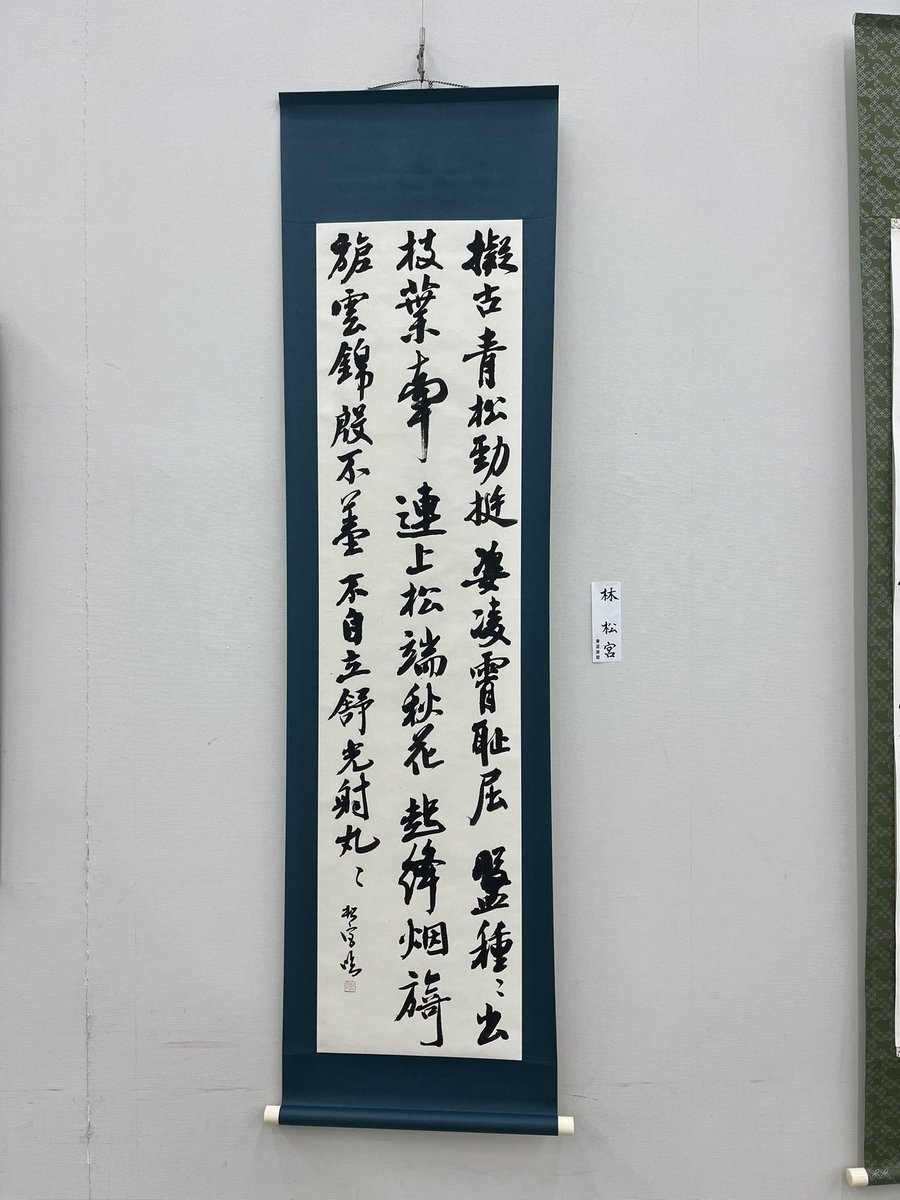 擬古青松勁挺姿凌霄耻屈盤種〻出
枝葉牽連上松端秋花起絳烟旖
旎雲錦殷不羞不自立舒光射丸〻 松宮臨
林 松宮